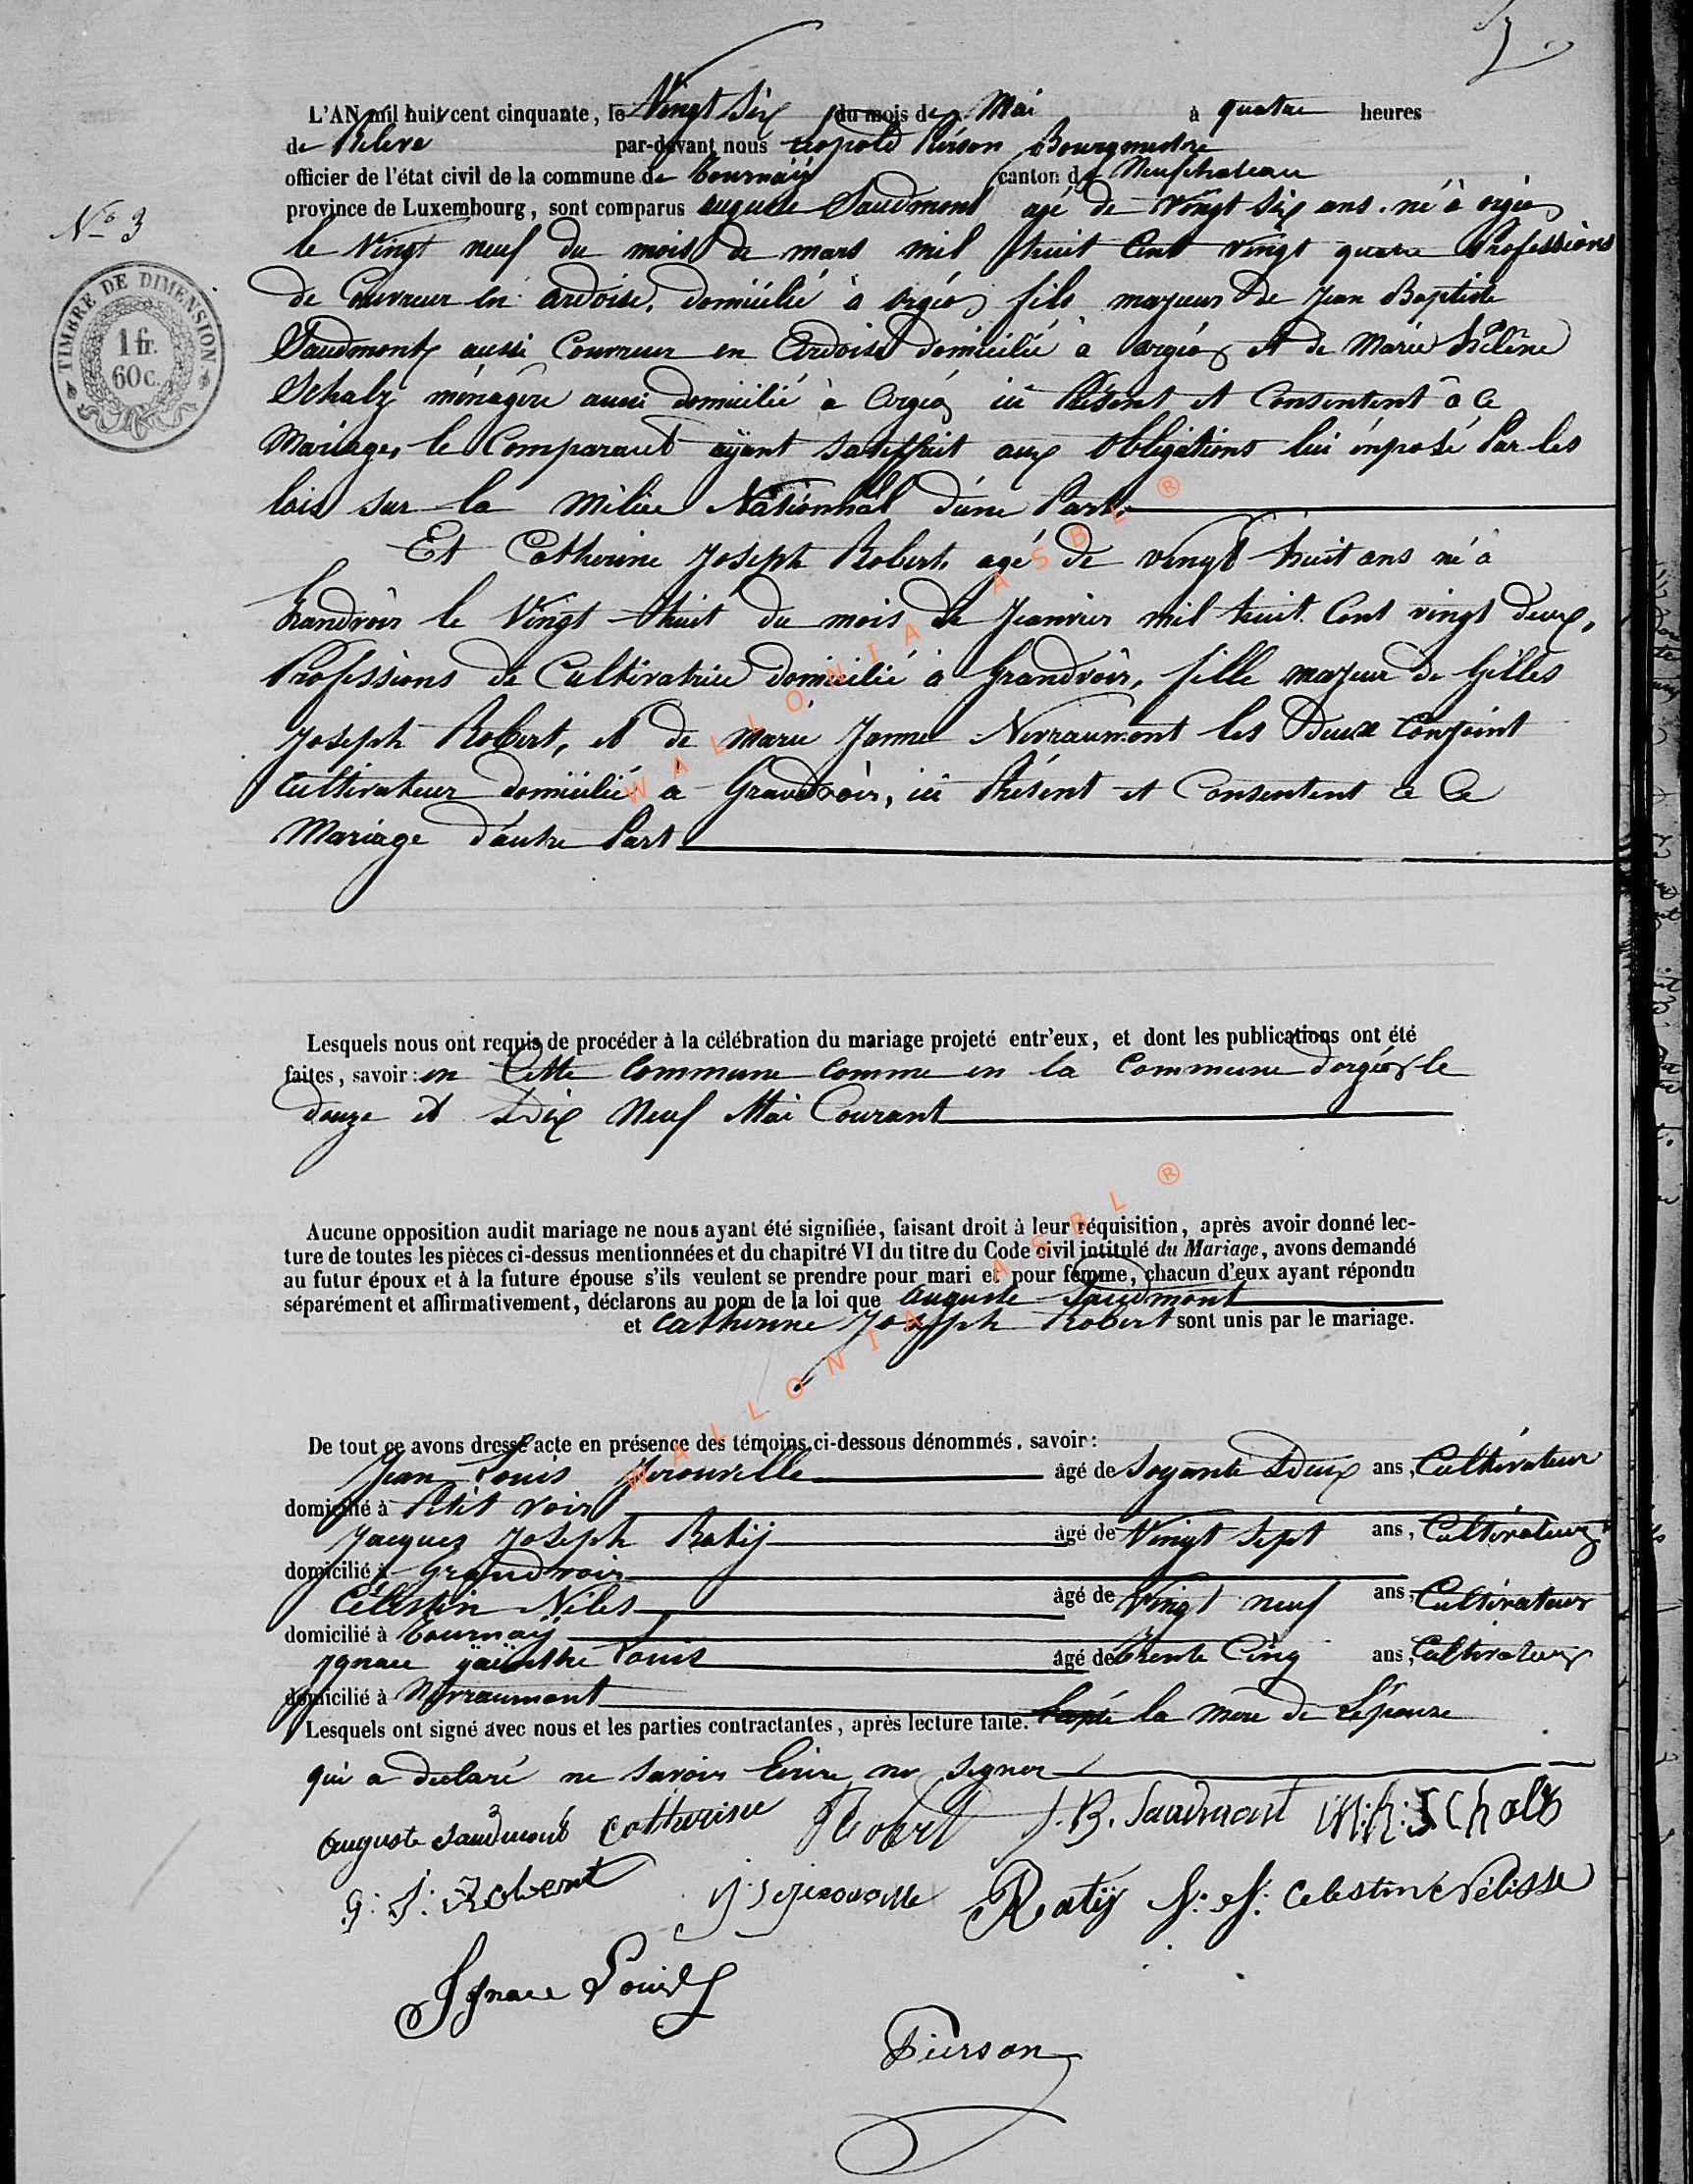 N° 3
TIMBRE DE DIMENSION
1 fr.
60 c.
L'AN mil huit cent cinquante, le Vingt Six du mois de Mai à quatre heures
de Releve par-devant nous Leopold Pierson Bourgmestre
officier de l'état civil de la commune de Tournaÿ canton de Neufchateau
province de Luxembourg, sont comparus auguste Saudmont agé de vingt Six ans, né à orgéo
le Vingt neuf du mois de mars mil huit Cent vingt quatre Professions
de Couvreur en ardoise, domicilié à orgéo fils majeur de Jean Baptiste
Saudmont aussi Couvreur en Ardoise domicilié à orgéo et de Marie hélène
Schalz ménagère aussi domicilié à Orgéo ici Présent et Consentent à Ce
Mariage, le Comparant aÿant satisffait aux Obligations lui inposé Par les
lois sur la Milice Nationnal d'une Part.
Et Catherine Joseph Robert, agé de vingt huit ans né à
Grandvoir le Vingt huit du mois de Jeanvier mil huit Cent vingt deux,
Professions de Cultivatrice domicilié à Grandvoir, fille majeur de Gilles
Joseph Robert, et de Marie Janne Nevraumont les Deux Conjoint
Cultivateur domicilié à Grandvoir, ici Présent et Consentent à Ce
Mariage d'autre Part
Lesquels nous ont requis de procéder à la célébration du mariage projeté entr'eux, et dont les publications ont été
faites, savoir: en Cette Commune Comme en la Commune d'orgéo le
douze et Dix Neuf Mai Courant
Aucune opposition audit mariage ne nous ayant été signifiée, faisant droit à leur réquisition, après avoir donné lec-
ture de toutes les pièces ci-dessus mentionnées et du chapitré VI du titre du Code civil intitulé du Mariage, avons demandé
au futur époux et à la future épouse s'ils veulent se prendre pour mari et pour femme, chacun d'eux ayant répondu
séparément et affirmativement, déclarons au nom de la loi que Auguste Saudmont
et Catherine Joseph Robert sont unis par le mariage.
De tout ce avons dressé acte en présence des témoins ci-dessous dénommés, savoir:
Jean Louis Jerouville âgé de Soyante Deux ans, Cultivateur
domicilié à Petit Voir
Jacques Joseph Ratij âgé de Vingt Sept ans, Cultivateur
domicilié à Grandvoir
Célestin Nélis âgé de Vingt neuf ans, Cultivateur
domicilié à Tournaÿ
Ignace Louis âgé de trente Cinq ans, Cultivateur
domicilié à Nevraumont
Lesquels ont signé avec nous et les parties contractantes, après lecture faite. la Mère de L'épouse
qui a declaré ne Savoir Ecrire ni Signer
Auguste Saudmont Catherine Robert J. B. Saudmont M: h: Schalz
G: J: Robert Ratij J: J: Celestin Nélisse
Ignace Louis
Pierson
WALLONIA ASBL ®
WALLONIA ASBL ®